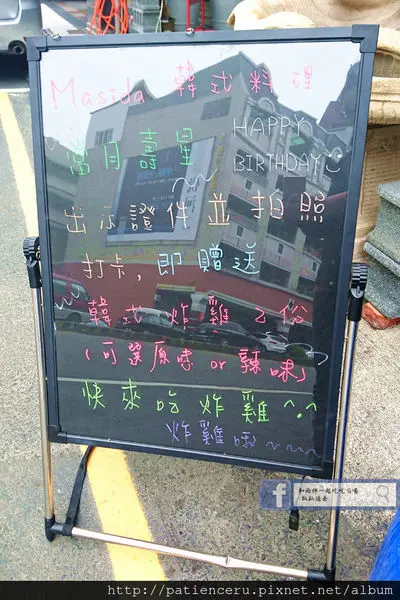 Masida 韓式料理
當月壽星 HAPPY BIRTHDAY
出示證件並拍照
打卡，即贈送
韓式炸雞乙份
(可選原味 or 辣味)
快來吃炸雞^.^
炸雞哦~~~
f 和雨神一起吃吃喝喝
趴趴造去
http://patienceru.pixnet.net/album